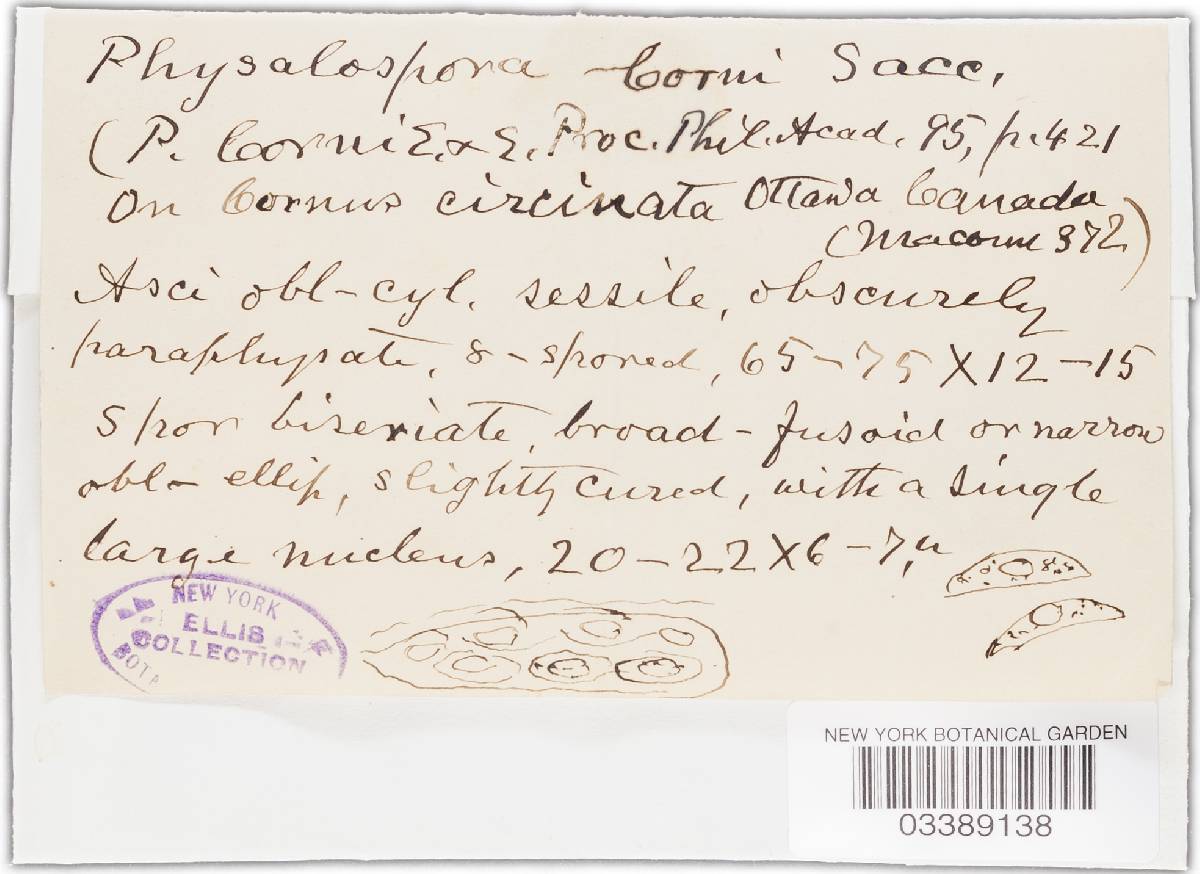 Physalospora Corni Sacc.
(P. Corni E. & E. Proc. Phil. Acad. 95, p. 421
On Cornus circinata Ottawa Canada
(Macoun 372)
Asci obl-cyl. sessile, obscurely
paraphysate, 8-spored, 65-75 X 12-15
Spor biseriate, broad-fusoid or narrow
obl- ellip, slightly cured, with a single
large nucleus, 20-22 X 6-7, µ
NEW YORK
ELLIS
COLLECTION
BOTA
NEW YORK BOTANICAL GARDEN
03389138